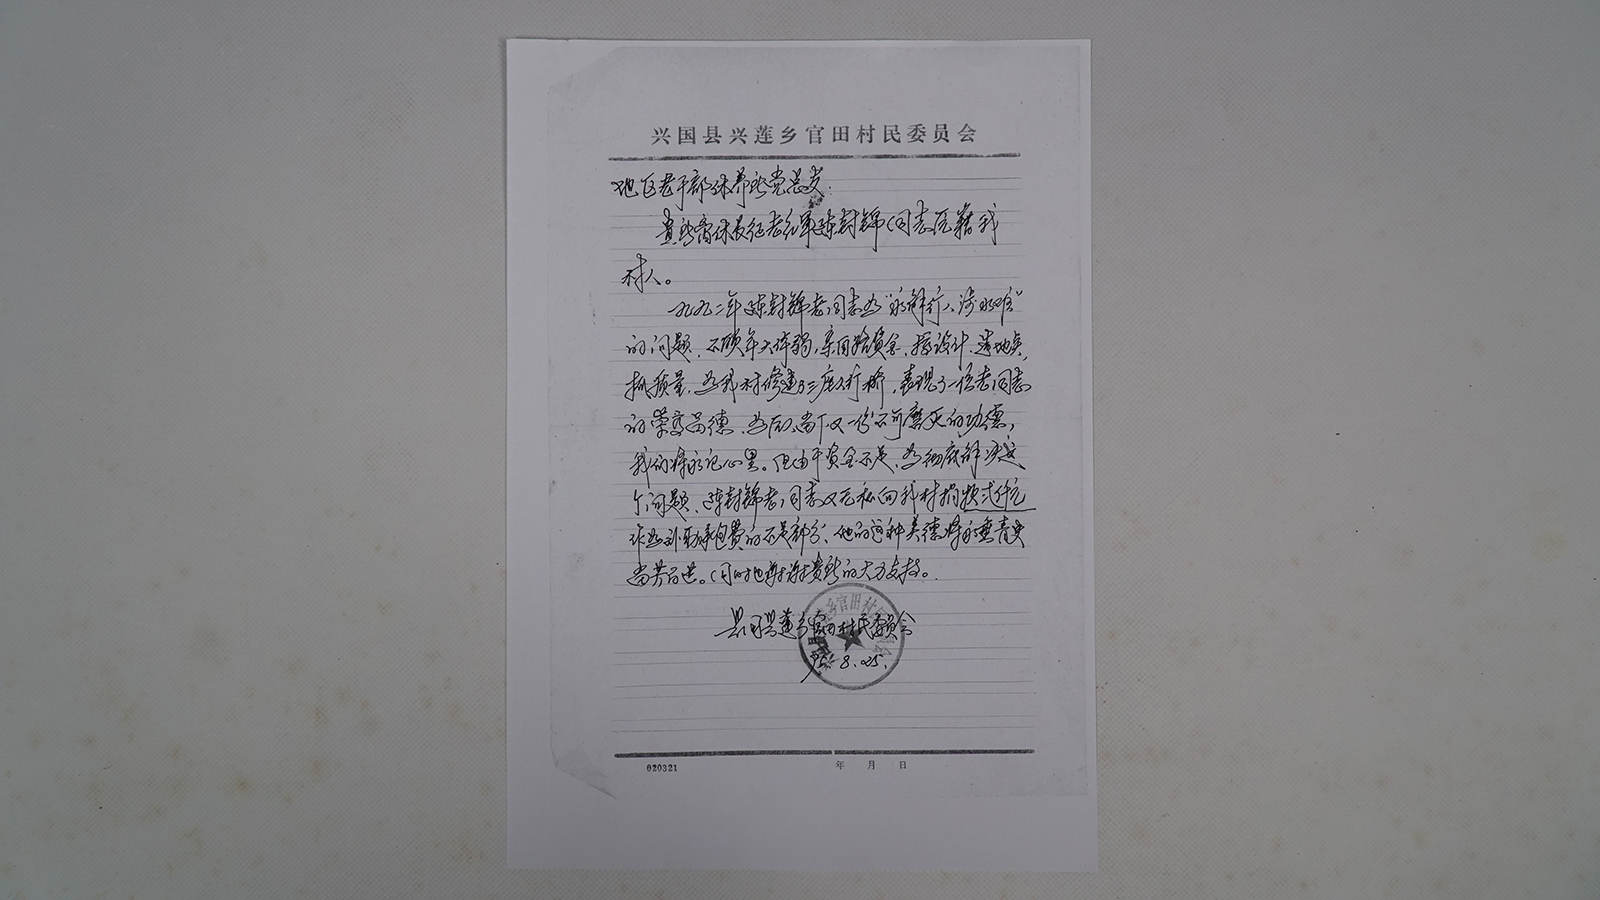 兴国县兴莲乡官田村民委员会
地区老干部休养所党总支:
贵所离休长征老红军陈封锦同志原籍我
村人。
一九九二年陈封锦老同志为"永解行人涉水难"
的问题,不顾年大体弱,亲自筹资金,搞设计,选地点,
抓质量,为我村修建了三座人行桥,表现了一位老同志
的荣奕品德,为后人尚下又一份不可磨灭的功德,
我们将永记心里。但由于资金不足,为彻底解决这
个问题,陈封锦老同志又无私向我村捐款弍仟元
作为补助承包费的不足部分,他的这种美德将永垂青史
尚芳百世。同时也谢谢贵所的大力支持。
兴国县兴莲乡官田村民委员会
乡官田村
95.8.25.
020321 年 月 日